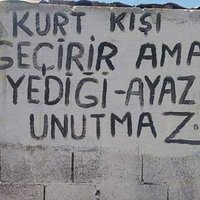 KURT KIŞI
GEÇİRİR AMA
YEDİĞİ-AYAZI
UNUTMAZ.